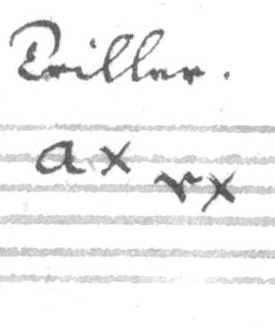 Triller.
a x r x